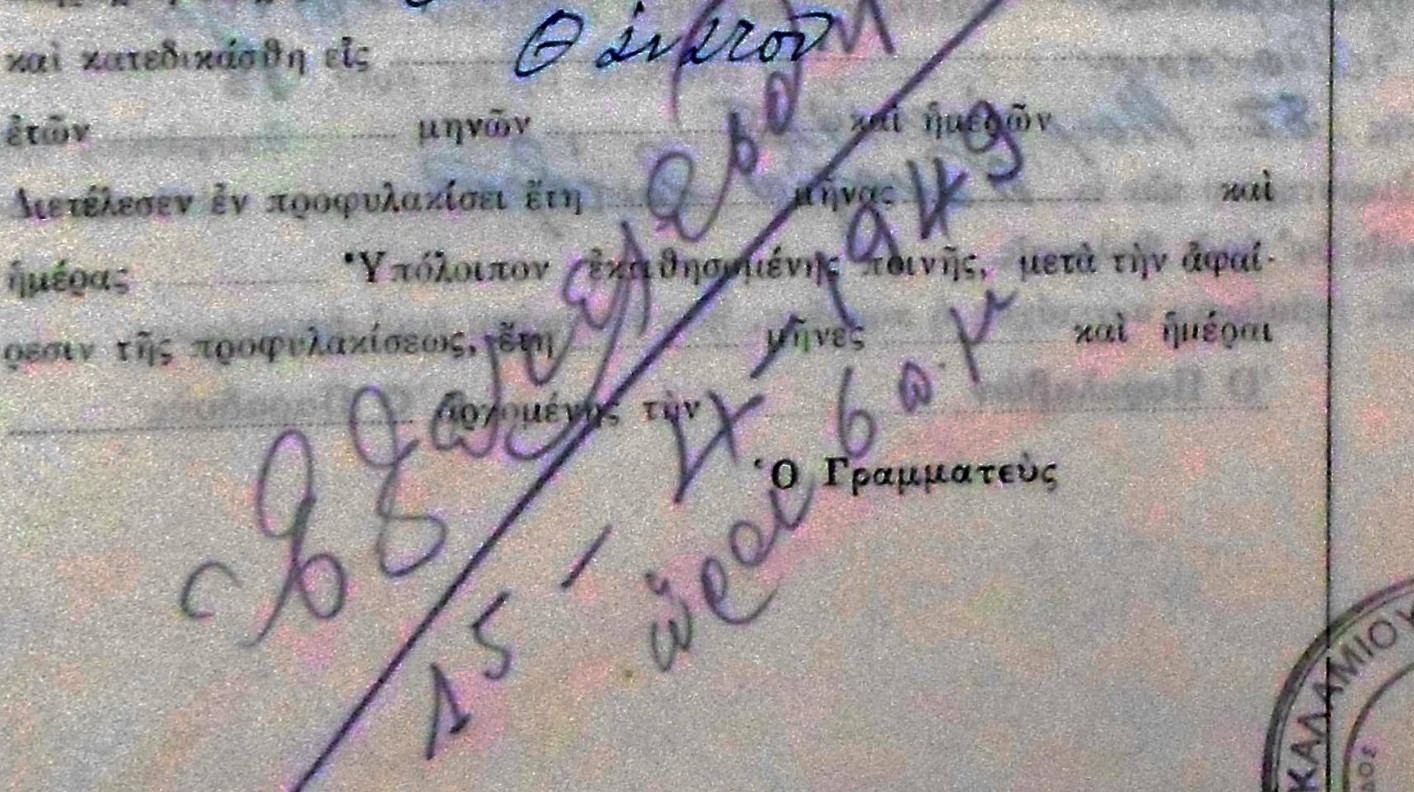 καὶ κατεδικάσθη εἰς Θάνατον
ἐτῶν μηνῶν καὶ ἡμερῶν
Διετέλεσεν ἐν προφυλακίσει ἔτη μῆνας καὶ
ἡμέρας Ὑπόλοιπον ἐκτιθησομένης ποινῆς, μετὰ τὴν ἀφαί-
ρεσιν τῆς προφυλακίσεως, ἔτη μῆνες καὶ ἡμέραι
ἀρχομένης τὴν
Ὁ Γραμματεὺς
15 - 4 - 1949
ὥραν 6 π.μ
ΚΑΛΑΜΙΟΥ